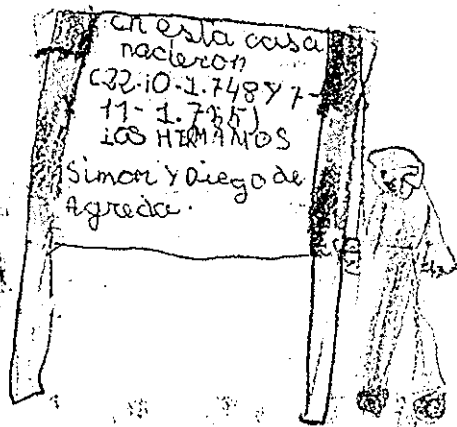 En esta casa
nacieron
(22-10-1.748 y 7-
11-1.751)
LOS HERMANOS
Simon y Diego de
Agreda.